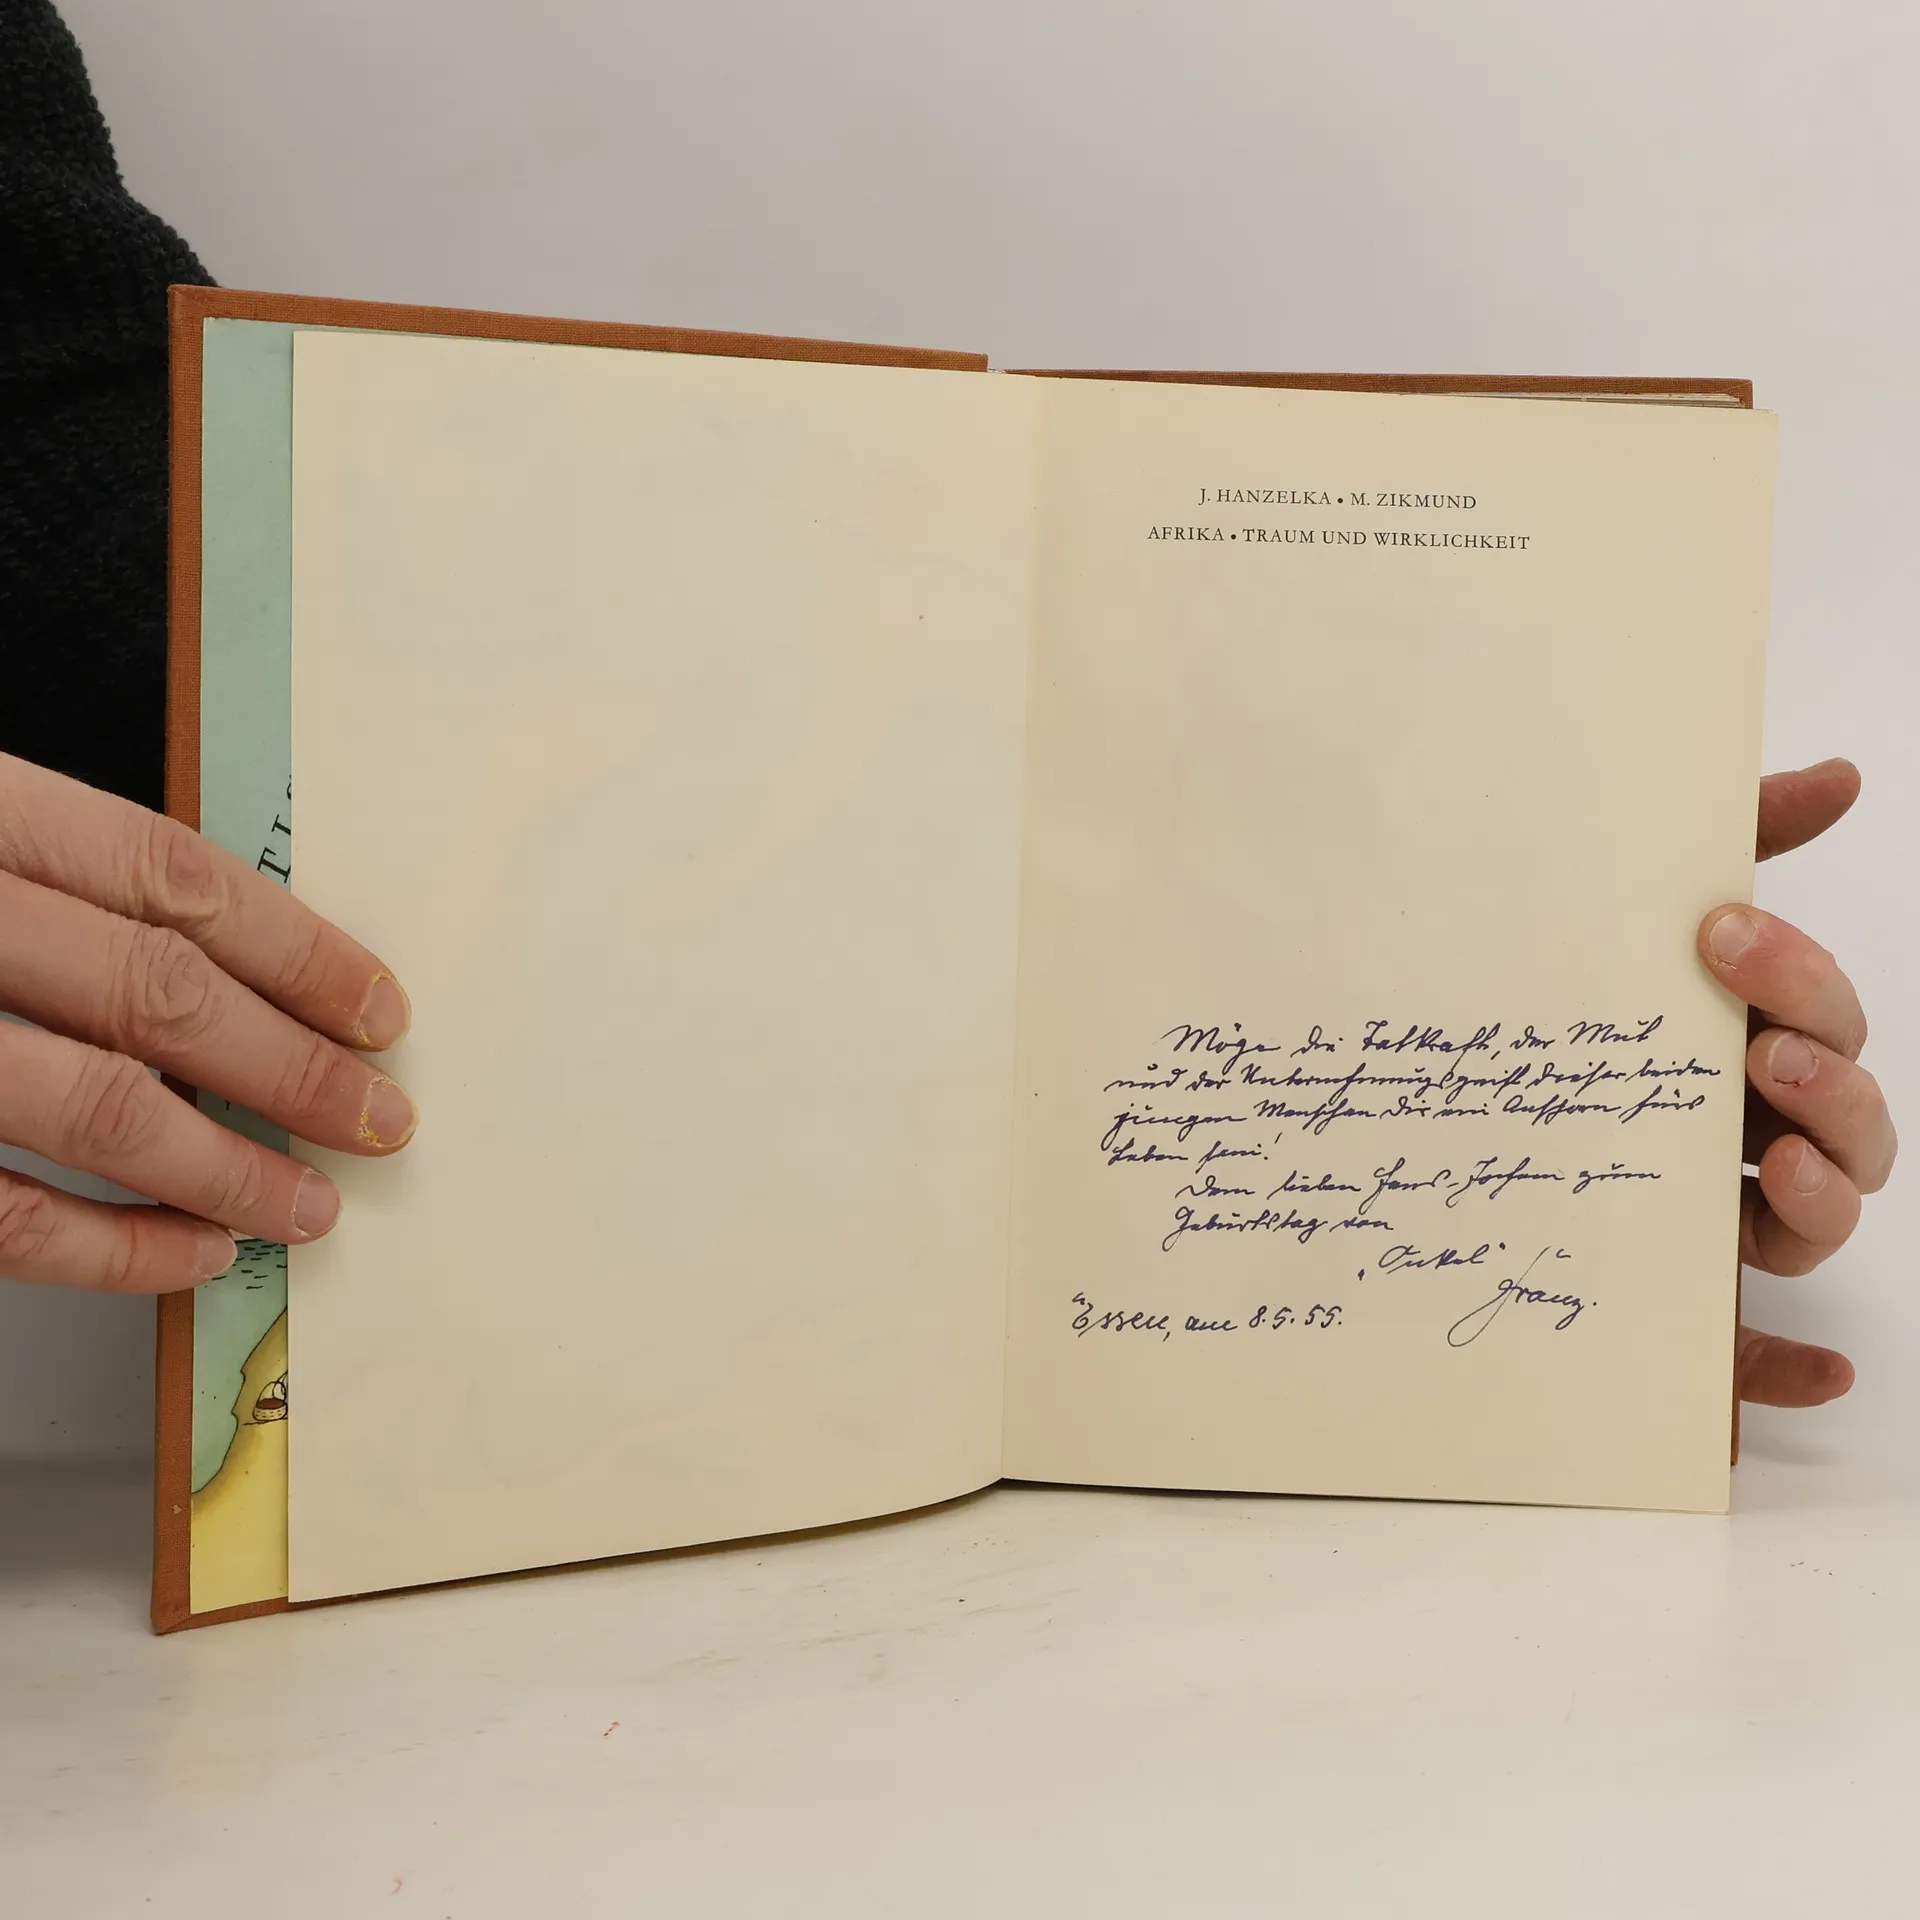 TIS
J. HANZELKA • M. ZIKMUND
AFRIKA • TRAUM UND WIRKLICHKEIT
Möge die Tatkraft, der Mut
und der Unternehmungsgeist dieser beiden
jungen Menschen Dir ein Ansporn fürs
Leben sein!
Dem lieben Hans-Jochem zum
Geburtstag von
„Onkel"
Franz.
Essen, am 8.5.55.